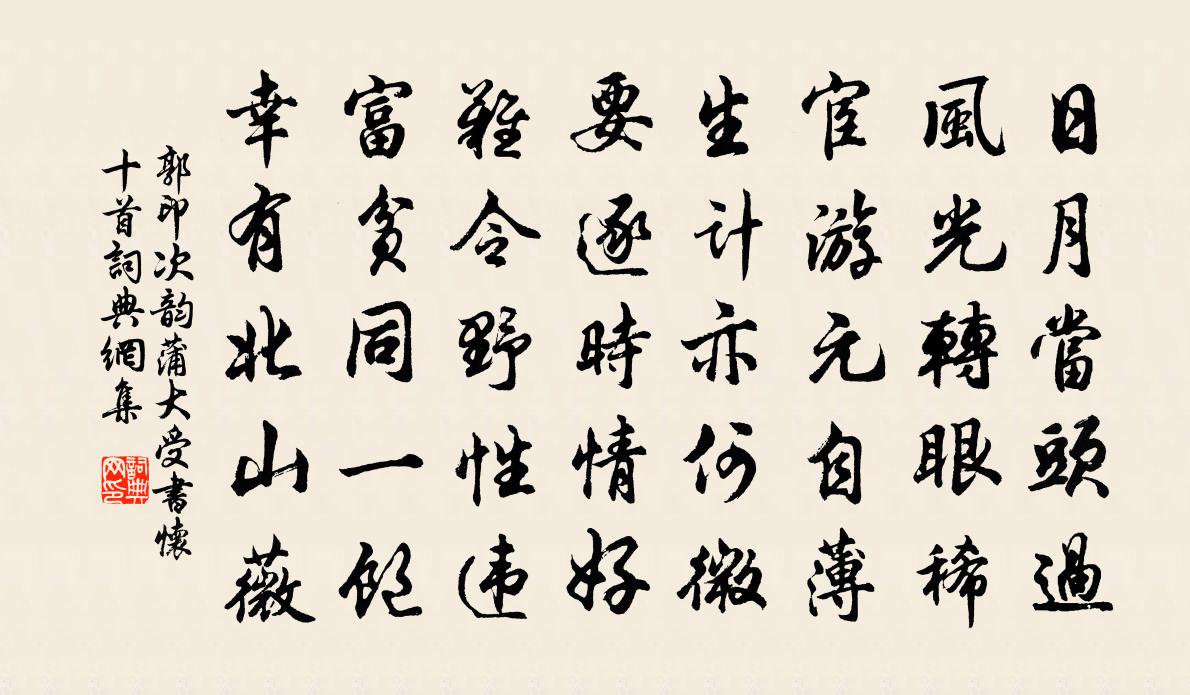 日月當頭過
風光轉眼稀
宦游元自薄
生計亦何微
要逐時情好
難令野性违
富貧同一飽
幸有北山薇
郭印次韵蒲大受書懷
十首詞典網集
詞典网印